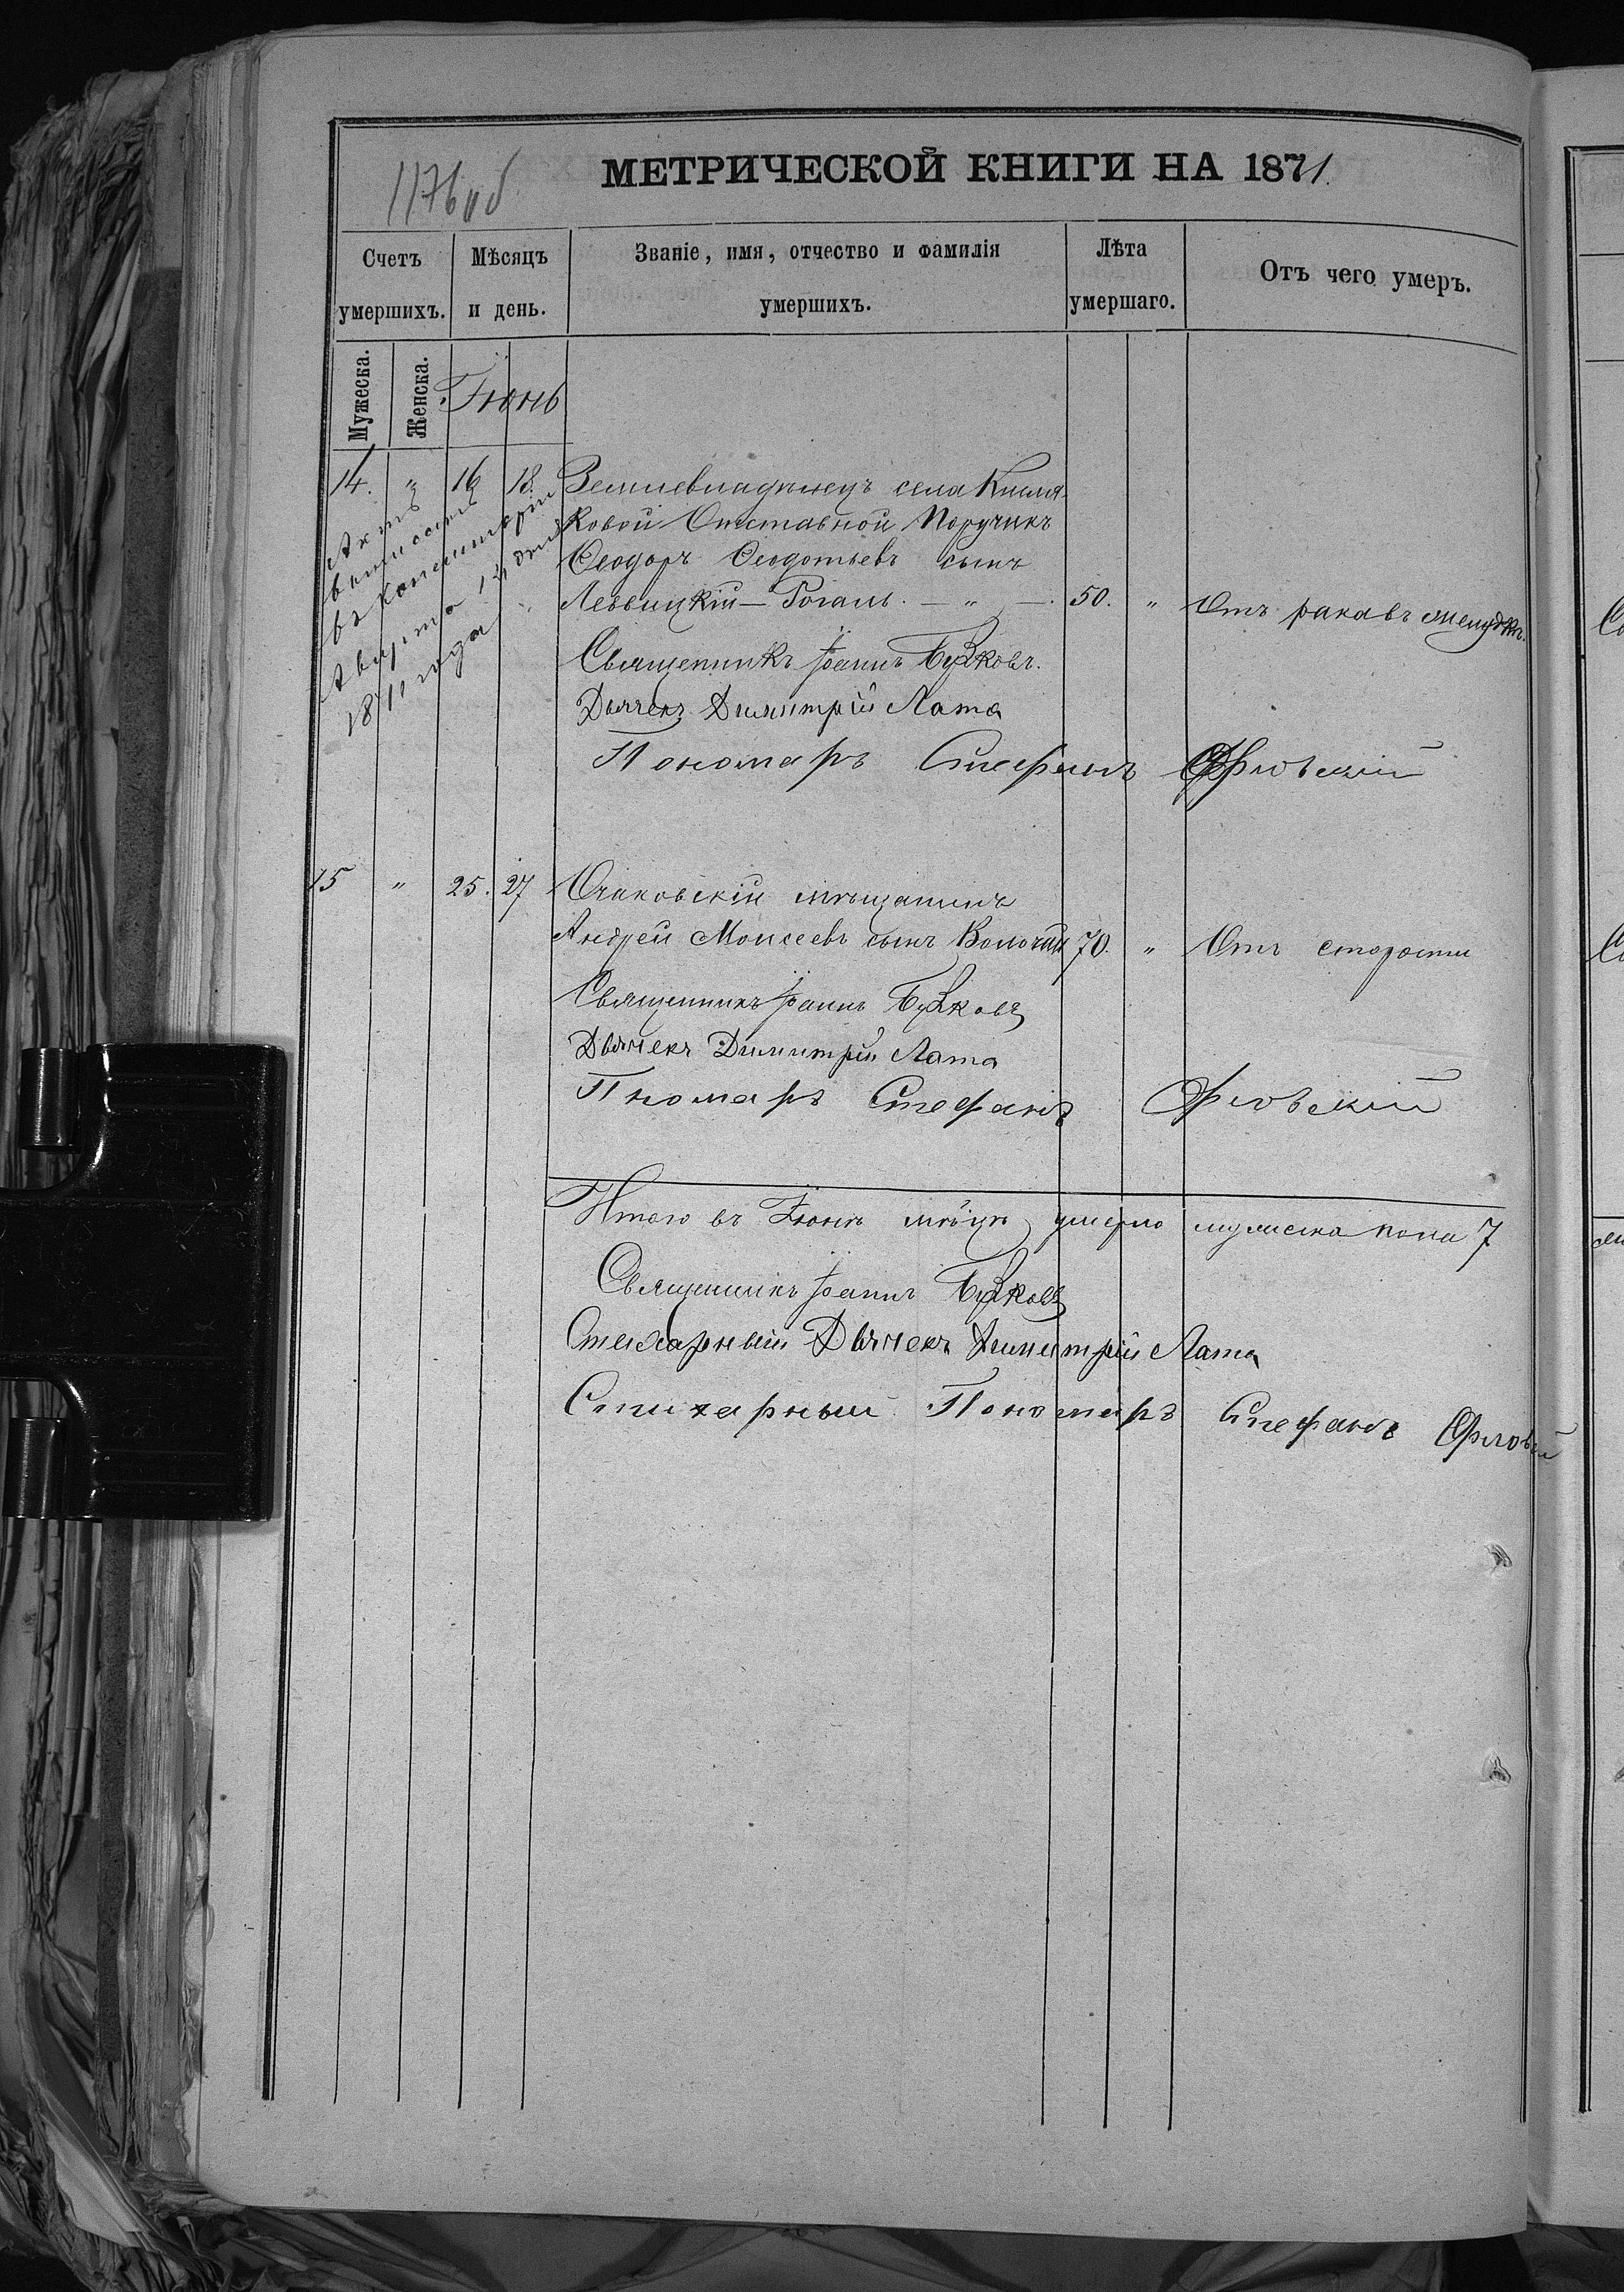 1176 об
МЕТРИЧЕСКОЙ КНИГИ НА 1871.
Счетъ умершихъ.
Мѣсяцъ и день.
Званіе, имя, отчество и фамилія умершихъ.
Лѣта умершаго.
Отъ чего умеръ.
Мужеска.
Женска.
Іюнь
14. " 16 18. Землевладѣлецъ села Кисля-
ковой Отставной Поручикъ
Ѳеодоръ Ѳеодотьевъ сынъ
Леввицкій - Рогаль. - " - . 50. " Отъ рака въ желудкѣ.
Актъ
выписанъ
въ Консисторіи
Августа 13 дня
1811 года
Священникъ Іоаннъ Бужковъ.
Дьячекъ Димитрій Лата
Пономаръ Стефанъ Орловскій
15 " 25. 27 Очаковскій мѣщанинъ
Андрей Моисеевъ сынъ 70. " Отъ старости
Священникъ Іоаннъ Бужковъ
Дьячекъ Димитрій Лата
Пномаръ Стефанъ Орловскій
Итого въ Іюнѣ мѣсцѣ умерло мужеска пола 7
Священникъ Іоаннъ Бужковъ
Стихарный Дьячекъ Димитрій Лата
Стихарный Пономаръ Стефанъ Орловскій